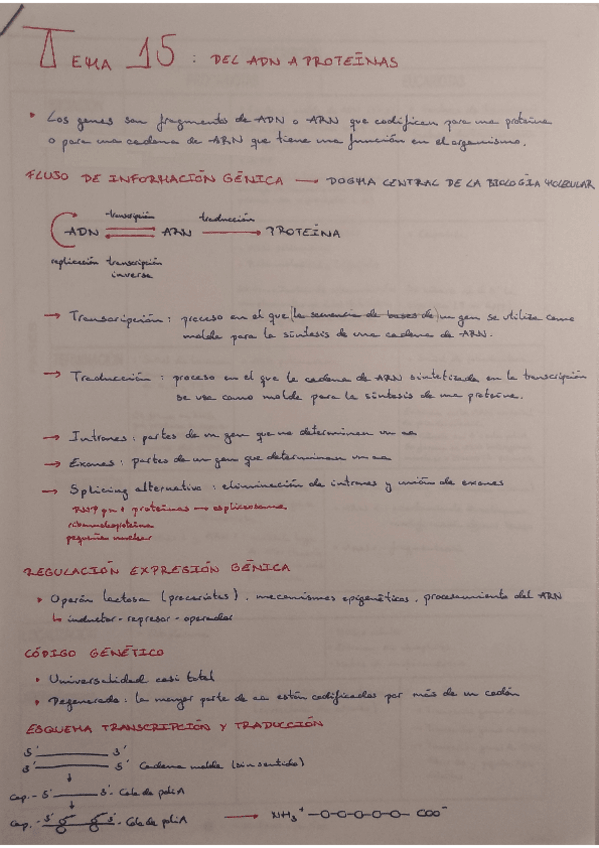 TEMA 15 : DEL ADN A PROTEÍNAS
• Los genes son fragmentos de ADN o ARN que codifican para una proteína
o para una cadena de ARN que tiene una función en el organismo.
FLUJO DE INFORMACIÓN GÉNICA → DOGMA CENTRAL DE LA BIOLOGÍA MOLECULAR
transcripción traducción
ADN ARN → PROTEÍNA
replicación transcripción
inversa
→ Transcripción : proceso en el que (la secuencia de bases de) un gen se utiliza como
molde para la síntesis de una cadena de ARN.
→ Traducción : proceso en el que la cadena de ARN sintetizada en la transcripción
se usa como molde para la síntesis de una proteína.
→ Intrones : partes de un gen que no determinan un aa
→ Exones : partes de un gen que determinan un aa
→ Splicing alternativo : eliminación de intrones y unión de exones
+ proteínas → espliceosoma.
ribonucleoproteína
pequeña nuclear
REGULACIÓN EXPRESIÓN GÉNICA
• Operón lactosa (procariotas). mecanismos epigenéticos. procesamiento del ARN
↳ inductor - represor - operador
CÓDIGO GENÉTICO
• Universalidad casi total
• Degenerado : la mayor parte de aa están codificados por más de un codón
ESQUEMA TRANSCRIPCIÓN Y TRADUCCIÓN
5' 3'
3' 5' Cadena molde (sin sentido)
Cap. - 5' 3' - Cola de poliA
Cap. - 5' 3' - Cola de poliA → NH3+ -O-O-O-O-O- COO-